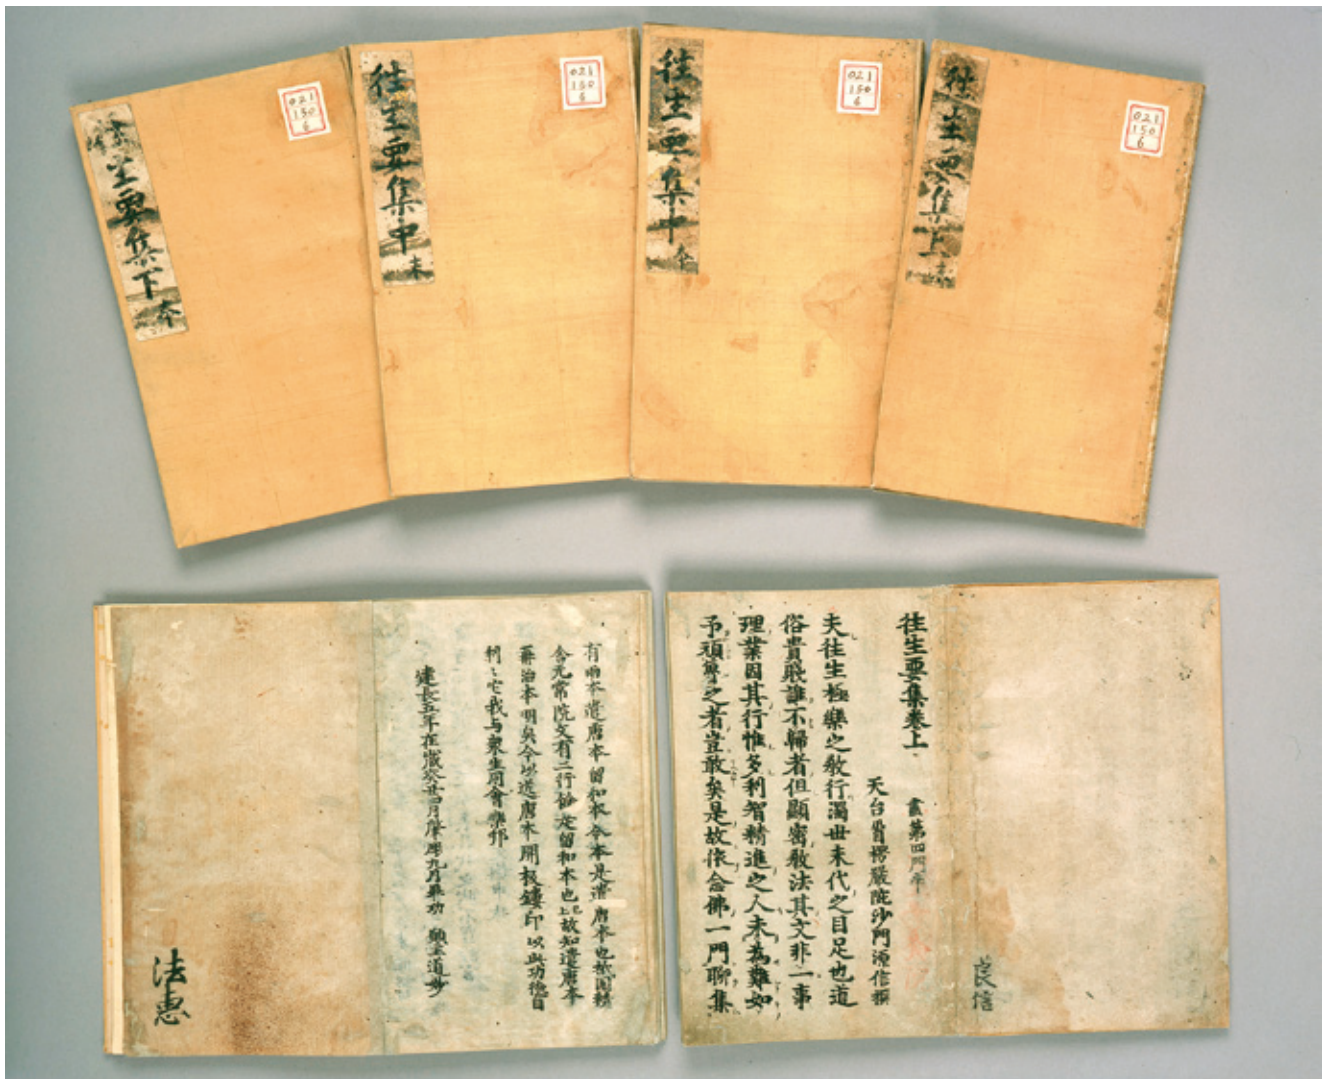 往生要集上末
021
150
6
往生要集中本
021
150
6
往生要集中末
021
150
6
往生要集下本
021
150
6
良信
往生要集巻上 盡第四門半
天台首楞嚴院沙門源信撰
夫往生極樂之教行濁世末代之目足也道
俗貴賤誰不歸者但顯密教法其文非一事
理業因其行惟多利智精進之人未為難如
予頑魯之者豈敢矣是故依念佛一門聊集
有兩本遣唐本留和本今本是遣唐本也祇園精
舍无常院文有二行餘是留和本也已上故知遣唐本
再治本明矣今以遣唐本開板鏤印以此功德自
利〻它我与衆生同會樂邦
建長五年在歳癸丑四月肇彫九月畢功 願主道妙
法惠